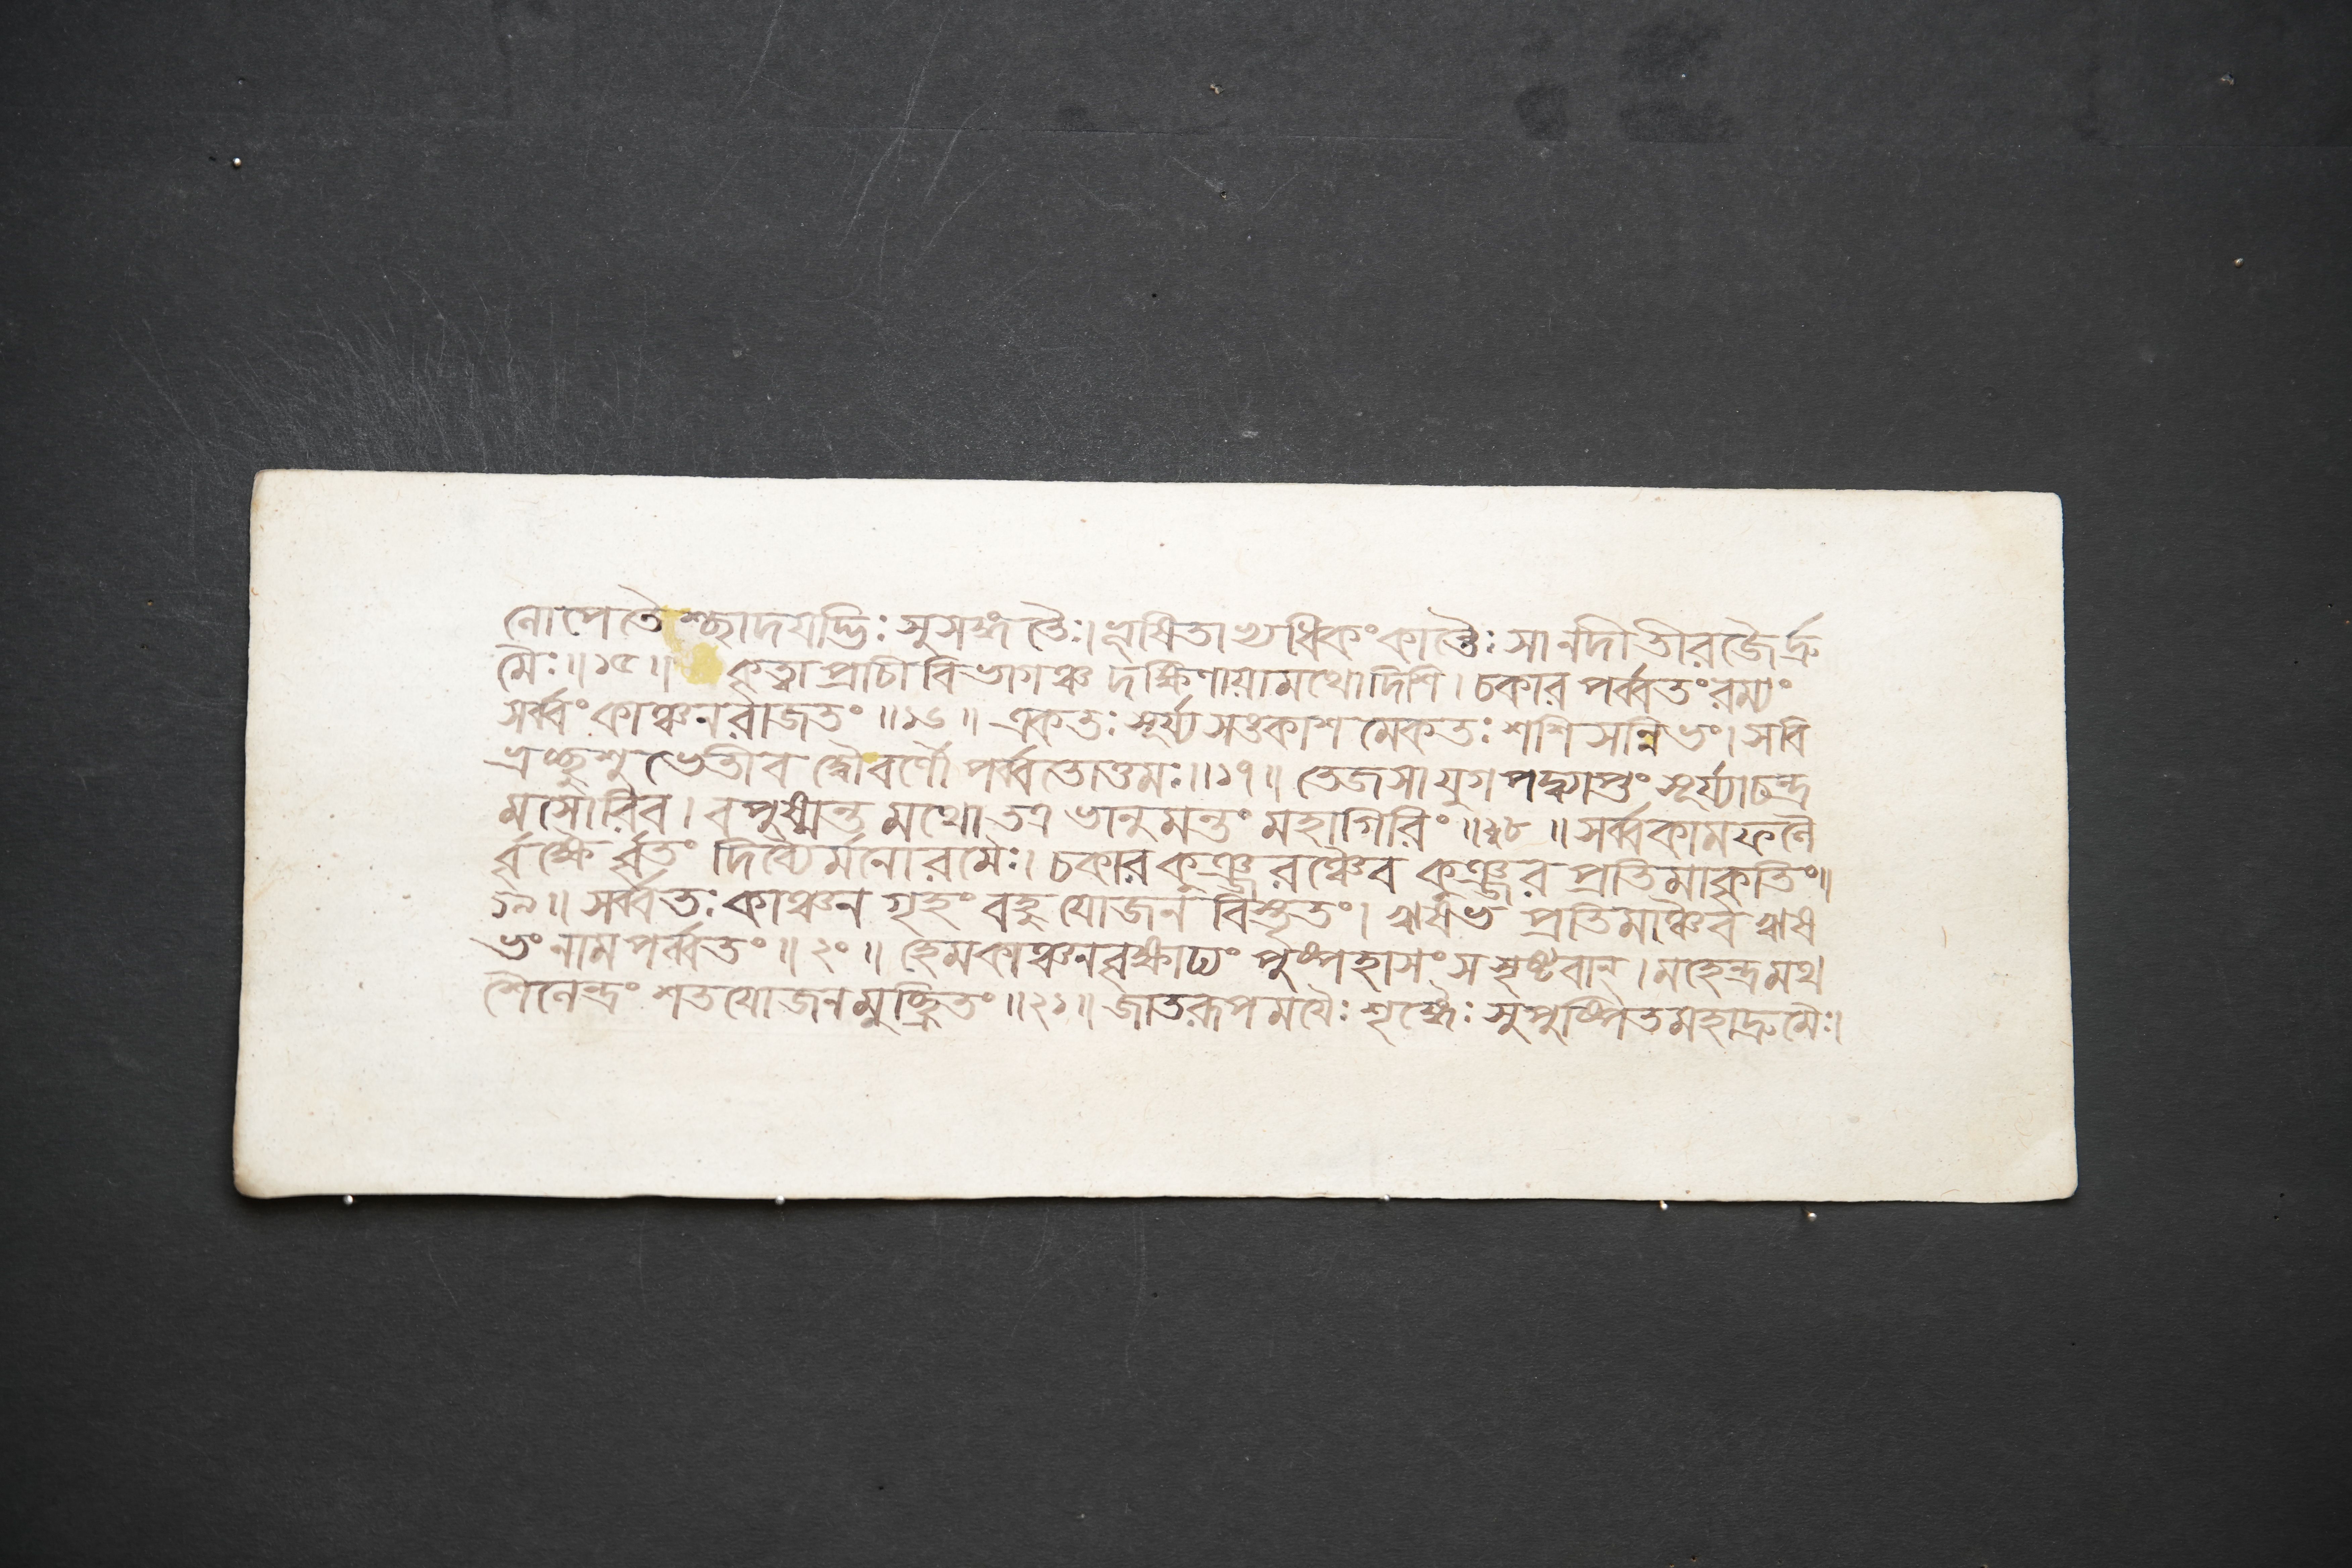 নোপেতৈশ্ছাদয়দ্ভিঃ সুসঙ্গতৈঃ। শ্লাঘিতাখ্যধিকং কান্তৈঃ সা নদী তীরজৈর্দ্রু
মৈঃ॥১৫॥ কৃত্বা প্রাচীবিভাগঞ্চ দক্ষিণায়ামথো দিশি। চকার পর্ব্বতং রম্যং
সর্ব্বং কাঞ্চনরাজতং॥১৬॥ একতঃ সূর্য্যসঙকাশমেকতঃ শশিসন্নিভং। স বি
ভ্রচ্ছুশুভেতীব দ্বৌ বর্ণৌ পর্ব্বতোত্তমঃ॥১৭॥ তেজসা যুগপদ্ব্যাপ্তং সূর্য্যাচন্দ্র
মসোরিব। বপুষ্মন্তমথো তত্র ভানুমন্তং মহাগিরিং॥১৮॥ সর্ব্বকামফলৈ
র্বৃক্ষৈর্বৃতং দিব্যৈর্মনোরমৈঃ। চকার কুঞ্জরঞ্চৈব কুঞ্জরপ্রতিমাকৃতিং॥
১৯॥ সর্ব্বতঃ কাঞ্চনগৃহং বহুযোজনবিস্তৃতং। ঋষভপ্রতিমাঞ্চৈব ঋষ
ভং নাম পর্ব্বতং॥২০॥ হেমকাঞ্চনবৃক্ষাঢ্যং পুষ্পহাসং স সৃষ্টবান্। মহেন্দ্রমথ
শৈলেন্দ্রং শতযোজনমুচ্ছ্রিতং॥২১॥ জাতরূপময়ৈঃ শৃঙ্গৈঃ সুপুষ্পিতমহাদ্রুমৈঃ।